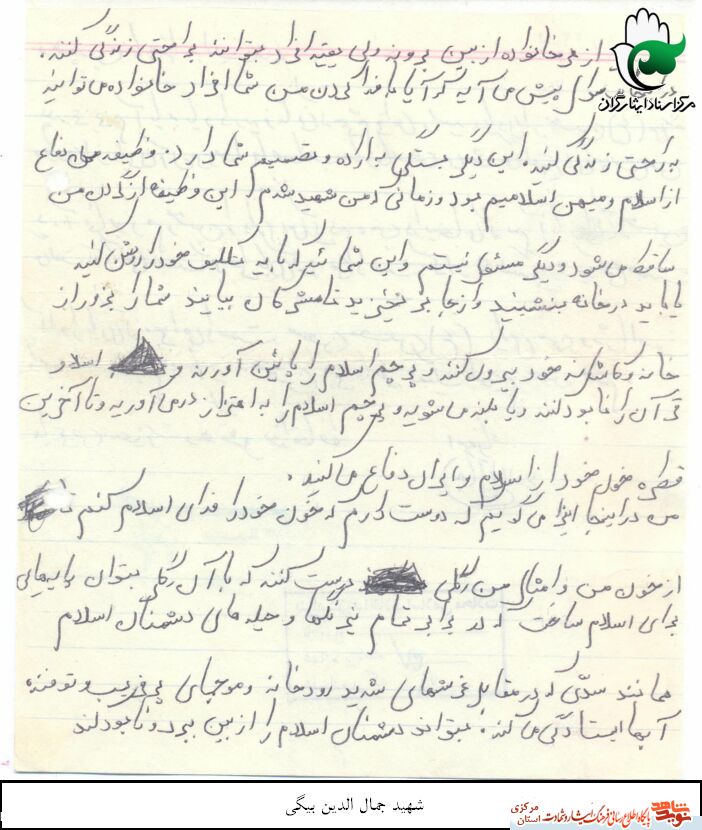 از هر خانواده از بین برود ولی بقیه افراد بتوانند براحتی زندگی کنند.
سؤال پیش می‌آید که آیا با فدا کردن من شما افراد خانواده می‌توانید
مرکز اسناد ایثارگران
براحتی زندگی کنید، این دیگر بستگی به اراده و تصمیم شما دارد. وظیفه من دفاع
از اسلام و میهن اسلامیم بود و زمانی که من شهید شدم این وظیفه از گردن من
ساقط می‌شود و دیگر مسئول نیستم و این شمائید که باید تکلیف خود را روشن کنید
یا باید در خانه بنشینید و از جا بر نخیزید تا مشرکان بیایند شما را بزور از
خانه و کاشانه خود بیرون کنند و پرچم اسلام را پائین آورند و اسلام
قرآن را نابود کنند و یا بلند می‌شوید و پرچم اسلام را به اهتزاز در می‌آورید و تا آخرین
قطره خون خود از اسلام و ایران دفاع می‌کنید.
من در اینجا اینرا می‌گویم که دوست دارم که خون خود را فدای اسلام کنم تا
از خون من و امثال من گلی درست کنند که با آن گل بتوان پایه‌های
برای اسلام ساخت که در برابر تمام نیرنگها و حیله های دشمنان اسلام
همانند سدّی که در مقابل غرشهای شدید رودخانه و موجهای پر فریب و توفنده
آبها ایستادگی می‌کند، بتواند دشمنان اسلام را از بین ببرد و نابود کند
شهید جمال الدین بیگی
نوید شاهد
پایگاه اطلاع رسانی فرهنگ ایثار و شهادت
استان مرکزی